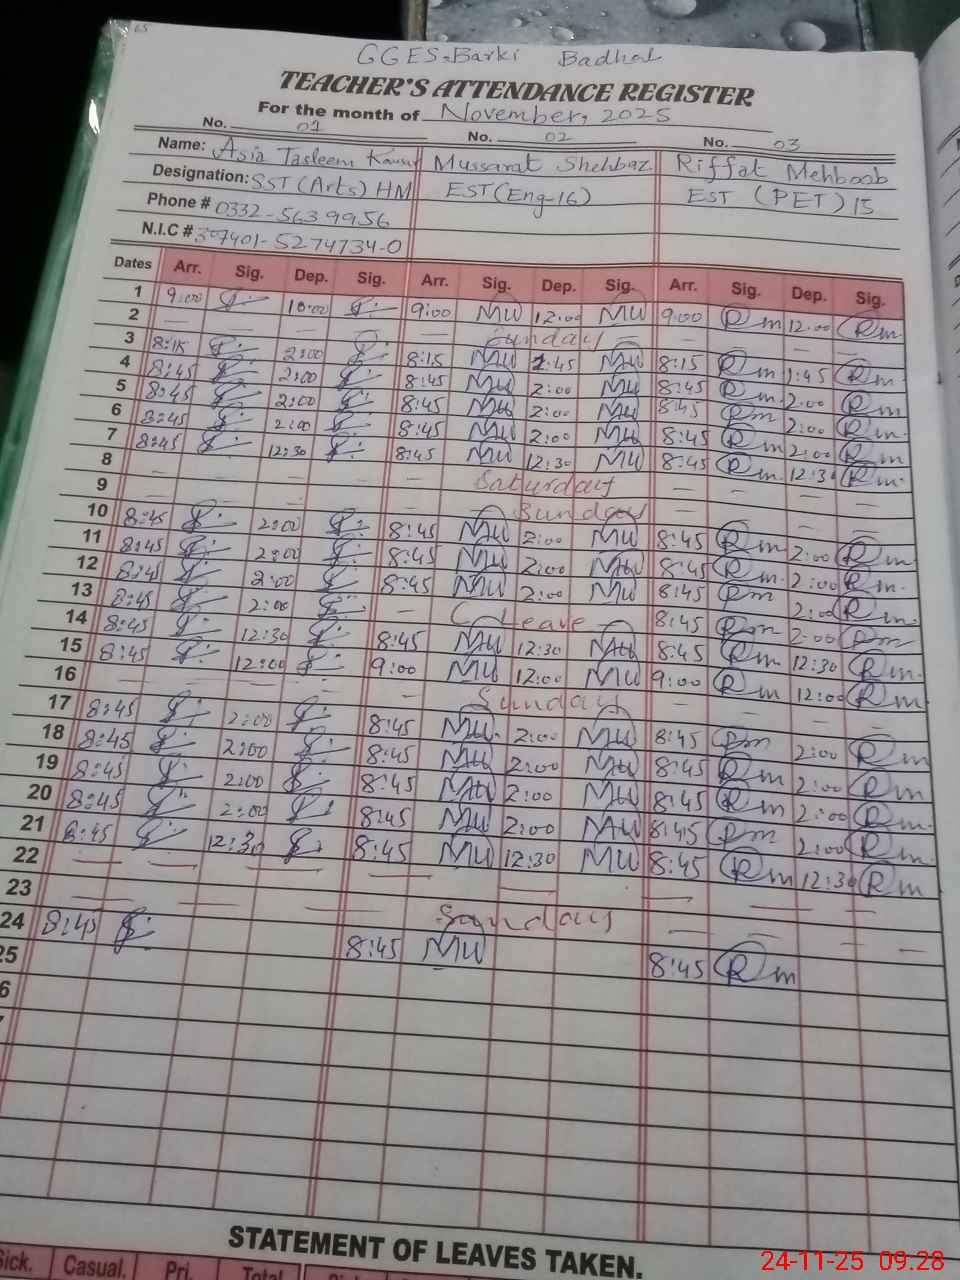 65
GGES Barki Badhal
TEACHER'S ATTENDANCE REGISTER
For the month of November, 2025
No. 01 No. 02 No. 03
Name: Asia Tasleem Kausar Mussarat Shehbaz Riffat Mehboob
Designation: SST (Arts) HM EST (Eng-16) EST (PET) 15
Phone # 0332-5639956
N.I.C # 37401-5274734-0
Dates Arr. Sig. Dep. Sig. Arr. Sig. Dep. Sig. Arr. Sig. Dep. Sig.
1 9:00 10:00 9:00 MW 12:00 MW 9:00 Rm 12:00 Rm
2 Sunday
3 8:15 2:00 8:15 MW 1:45 MW 8:15 Rm 1:45 Rm
4 8:45 2:00 8:45 MW 2:00 MW 8:45 Rm 2:00 Rm
5 8:45 2:00 8:45 MW 2:00 MW 8:45 Rm 2:00 Rm
6 8:45 2:00 8:45 MW 2:00 MW 8:45 Rm 2:00 Rm
7 8:45 12:30 8:45 MW 12:30 MW 8:45 Rm 12:30 Rm
8 Saturday
9 Sunday
10 8:45 2:00 8:45 MW 2:00 MW 8:45 Rm 2:00 Rm
11 8:45 2:00 8:45 MW 2:00 MW 8:45 Rm 2:00 Rm
12 8:45 2:00 8:45 MW 2:00 MW 8:45 Rm 2:00 Rm
13 8:45 2:00 C Leave 8:45 Rm 2:00 Rm
14 8:45 12:30 8:45 MW 12:30 MW 8:45 Rm 12:30 Rm
15 8:45 12:00 9:00 MW 12:00 MW 9:00 Rm 12:00 Rm
16 Sunday
17 8:45 2:00 8:45 MW 2:00 MW 8:45 Rm 2:00 Rm
18 8:45 2:00 8:45 MW 2:00 MW 8:45 Rm 2:00 Rm
19 8:45 2:00 8:45 MW 2:00 MW 8:45 Rm 2:00 Rm
20 8:45 2:00 8:45 MW 2:00 MW 8:45 Rm 2:00 Rm
21 8:45 12:30 8:45 MW 12:30 MW 8:45 Rm 12:30 Rm
22
23 Sunday
24 8:45 8:45 MW 8:45 Rm
25
STATEMENT OF LEAVES TAKEN.
Sick. Casual. Pri. Total
24-11-25 09:28